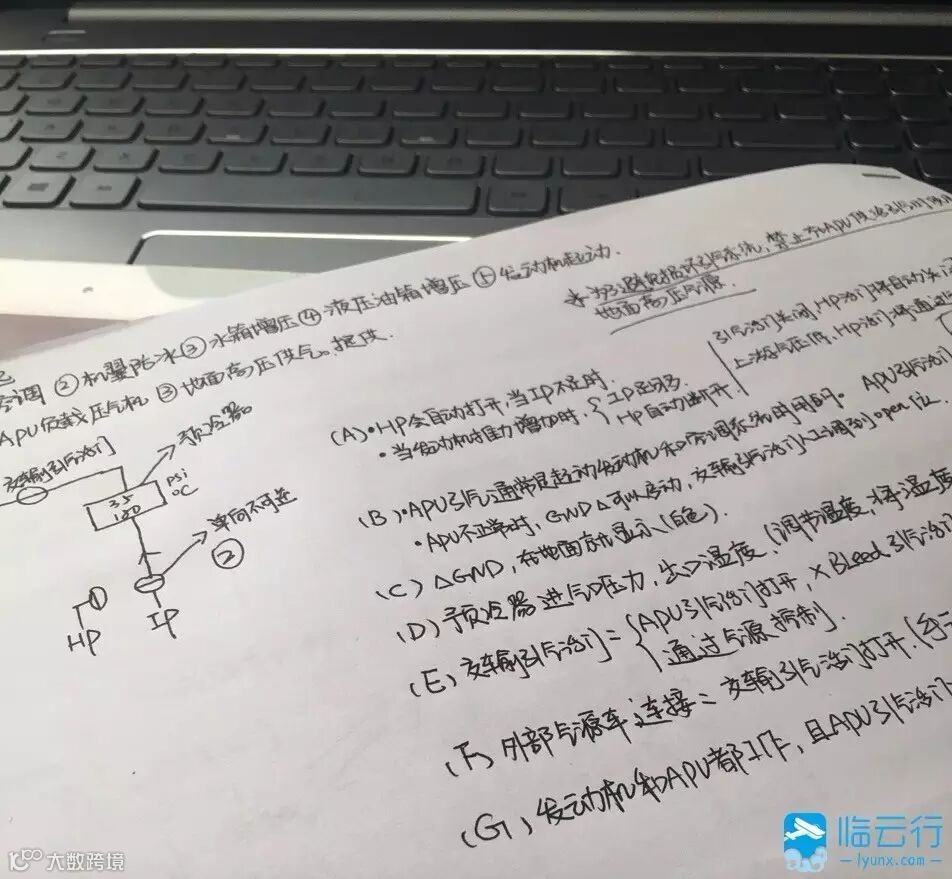 空调 ② 机翼防冰 ③ 水箱增压 ④ 液压油箱增压 ① 发动机起动.
APU负载压气机 ③ 地面高压供气。提供.
* 为避免损坏引气系统, 禁止在APU供给引气时使用
地面高压气源.
交输引气活门
预冷器
35
150
psi
°C
单向不可逆
②
①
HP
IP
(A)•HP会自动打开, 当IP不足时.
•当发动机推力增加时, { IP足够.
HP自动断开.
引气活门关闭, HP活门将自动关闭
(B)•APU引气通常是起动发动机和空调系统时用的. APU引气活门
•APU不正常时, GND △可以启动, 交输引气活门人工调到open位.
(C) △GND, 在地面就显示 (白色).
(D) 预冷器进气口压力, 出口温度, (调节温度, 将温度
(E) 交输引气活门= { APU引气活门打开, × Bleed引气活门
通过气源控制.
(F) 外部气源车连接= 交输引气活门打开.
(G) 发动机和APU都工作, 且APU引气活门
临云行
lyunx.com
大数跨境